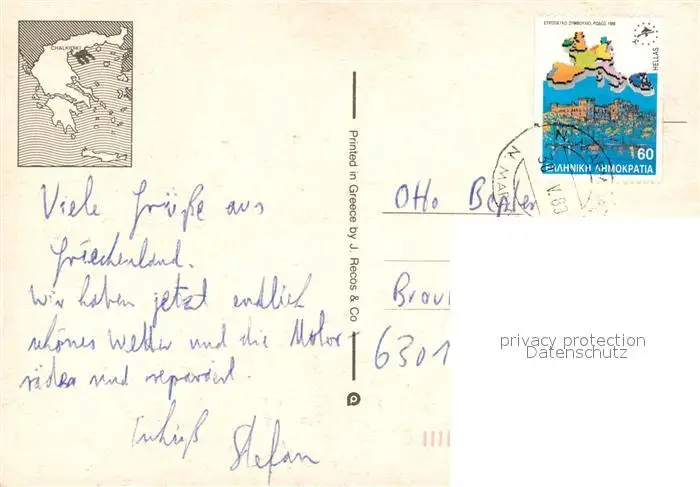 CHALKIDIKI
ΕΥΡΩΠΑΪΚΟ ΣΥΜΒΟΥΛΙΟ, ΡΟΔΟΣ 1988
HELLAS
60
ΕΛΛΗΝΙΚΗ ΔΗΜΟΚΡΑΤΙΑ
Viele Grüße aus
Griechenland.
Wir haben jetzt endlich
schönes Wetter und die Motor-
räder sind repariert.
Stefan
Printed in Greece by J. Recos & Co
Otto
Brau
6301
privacy protection
Datenschutz